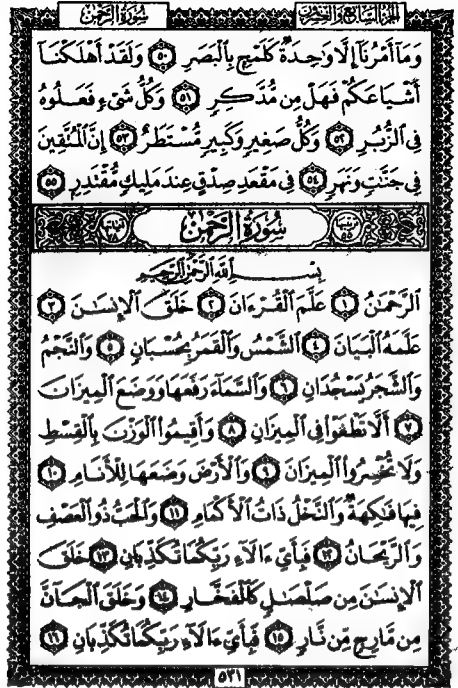 سُورَةُ الرَّحْمَن الجزء السابع والعشرون
وَمَآ أَمْرُنَآ إِلَّا وَٰحِدَةٌ كَلَمْحٍۭ بِٱلْبَصَرِ ٥٠ وَلَقَدْ أَهْلَكْنَآ
أَشْيَاعَكُمْ فَهَلْ مِن مُّدَّكِرٍ ٥١ وَكُلُّ شَىْءٍ فَعَلُوهُ
فِى ٱلزُّبُرِ ٥٢ وَكُلُّ صَغِيرٍ وَكَبِيرٍ مُّسْتَطَرٌ ٥٣ إِنَّ ٱلْمُتَّقِينَ
فِى جَنَّٰتٍ وَنَهَرٍ ٥٤ فِى مَقْعَدِ صِدْقٍ عِندَ مَلِيكٍ مُّقْتَدِرٍۭ ٥٥
سُورَةُ الرَّحْمَن
بِسْمِ ٱللَّهِ ٱلرَّحْمَٰنِ ٱلرَّحِيمِ
ٱلرَّحْمَٰنُ ١ عَلَّمَ ٱلْقُرْءَانَ ٢ خَلَقَ ٱلْإِنسَٰنَ ٣
عَلَّمَهُ ٱلْبَيَانَ ٤ ٱلشَّمْسُ وَٱلْقَمَرُ بِحُسْبَانٍ ٥ وَٱلنَّجْمُ
وَٱلشَّجَرُ يَسْجُدَانِ ٦ وَٱلسَّمَآءَ رَفَعَهَا وَوَضَعَ ٱلْمِيزَانَ
٧ أَلَّا تَطْغَوْا۟ فِى ٱلْمِيزَانِ ٨ وَأَقِيمُوا۟ ٱلْوَزْنَ بِٱلْقِسْطِ
وَلَا تُخْسِرُوا۟ ٱلْمِيزَانَ ٩ وَٱلْأَرْضَ وَضَعَهَا لِلْأَنَامِ ١٠
فِيهَا فَٰكِهَةٌ وَٱلنَّخْلُ ذَاتُ ٱلْأَكْمَامِ ١١ وَٱلْحَبُّ ذُو ٱلْعَصْفِ
وَٱلرَّيْحَانُ ١٢ فَبِأَىِّ ءَالَآءِ رَبِّكُمَا تُكَذِّبَانِ ١٣ خَلَقَ
ٱلْإِنسَٰنَ مِن صَلْصَٰلٍ كَٱلْفَخَّارِ ١٤ وَخَلَقَ ٱلْجَآنَّ
مِن مَّارِجٍ مِّن نَّارٍ ١٥ فَبِأَىِّ ءَالَآءِ رَبِّكُمَا تُكَذِّبَانِ ١٦
٥٣١